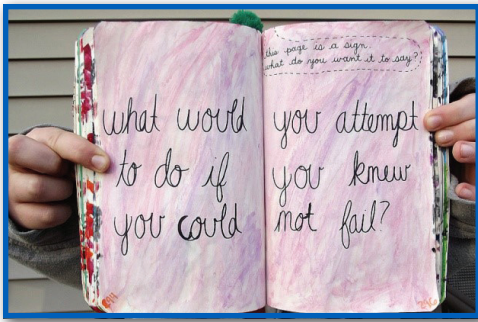 this page is a sign.
what do you want it to say?
what would you attempt
to do if you knew
you could not fail?